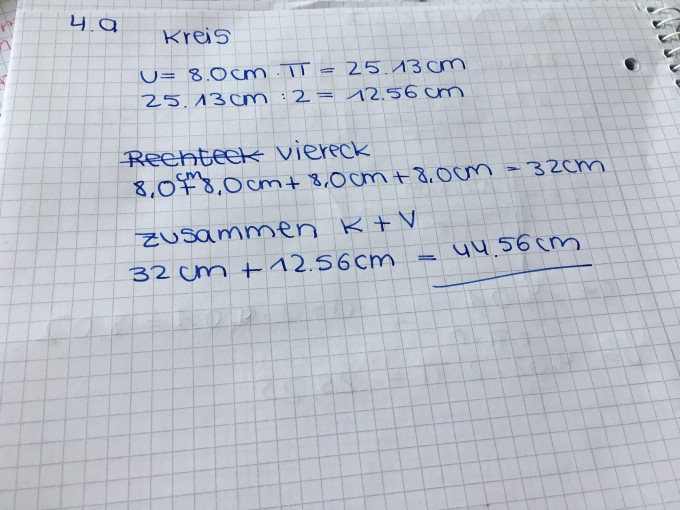 4.a
Kreis
U = 8.0cm · π = 25.13cm
25.13cm : 2 = 12.56cm
Rechteck Viereck
8,0cm + 8,0cm + 8,0cm + 8,0cm = 32cm
zusammen K + V
32 cm + 12.56cm = 44.56cm